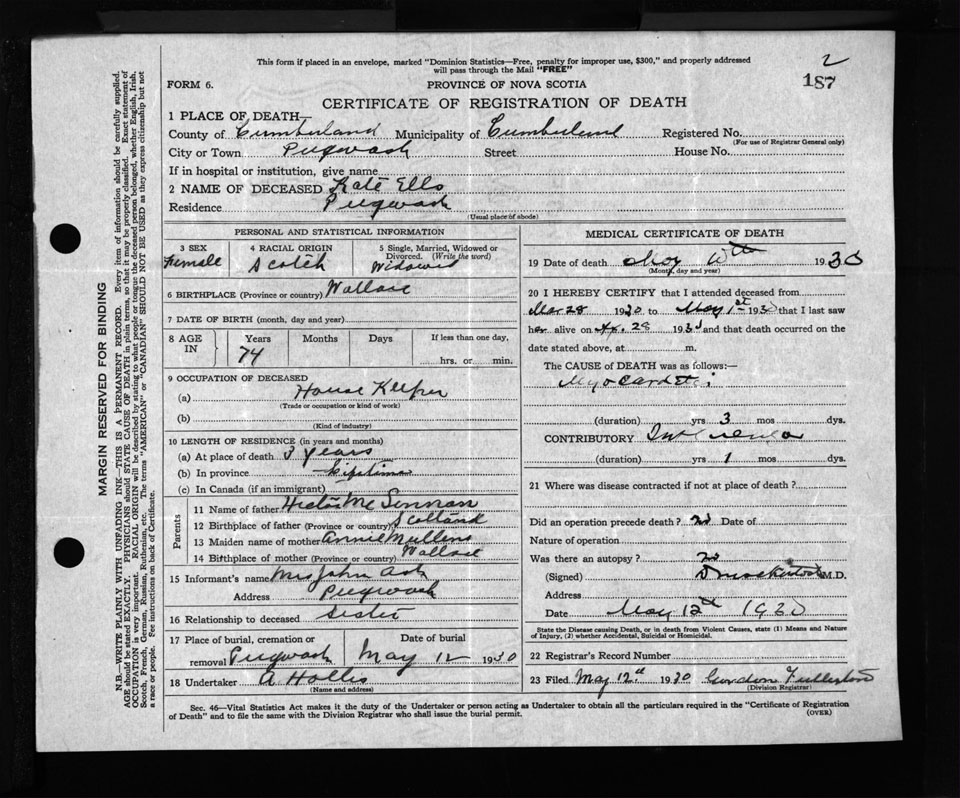 2
187
This form if placed in an envelope, marked "Dominion Statistics—Free, penalty for improper use, $300," and properly addressed
will pass through the Mail "FREE"
FORM 6.
PROVINCE OF NOVA SCOTIA
CERTIFICATE OF REGISTRATION OF DEATH
1 PLACE OF DEATH—
County of Cumberland Municipality of Cumberland Registered No.
(For use of Registrar General only)
City or Town Pugwash Street House No.
If in hospital or institution, give name
2 NAME OF DECEASED Kate Ells
Residence Pugwash
(Usual place of abode)
PERSONAL AND STATISTICAL INFORMATION
3 SEX
Female
4 RACIAL ORIGIN
Scotch
5 Single, Married, Widowed or
Divorced. (Write the word)
Widowed
6 BIRTHPLACE (Province or country) Wallace
7 DATE OF BIRTH (month, day and year)
8 AGE
IN
Years Months Days If less than one day,
74
hrs. or min.
9 OCCUPATION OF DECEASED
(a) House Keeper
(Trade or occupation or kind of work)
(b)
(Kind of industry)
10 LENGTH OF RESIDENCE (in years and months)
(a) At place of death 3 years
(b) In province Lifetime
(c) In Canada (if an immigrant)
Parents
11 Name of father Hector McLennan
12 Birthplace of father (Province or country) Scotland
13 Maiden name of mother Annie Mullens
14 Birthplace of mother (Province or country) Wallace
15 Informant's name Mrs John Ash
Address Pugwash
16 Relationship to deceased Sister
17 Place of burial, cremation or
removal Pugwash
Date of burial
May 12 1930
18 Undertaker A Hollis
(Name and address)
MEDICAL CERTIFICATE OF DEATH
19 Date of death May 1930
(Month, day and year)
20 I HEREBY CERTIFY that I attended deceased from
Mar 28 1930 to May 1st 1930 that I last saw
her alive on Ap. 28 1930 and that death occurred on
date stated above, at m.
The CAUSE OF DEATH was as follows:—
Myocarditis
(duration) yrs 3 mos dys.
CONTRIBUTORY Influenza
(duration) yrs 1 mos dys.
21 Where was disease contracted if not at place of death?
Did an operation precede death? no Date of
Nature of operation
Was there an autopsy? no
(Signed) M.D.
Address
Date May 12th 1930
State the Disease causing Death, or in death from Violent Causes, state (1) Means and Nature
of Injury, (2) whether Accidental, Suicidal or Homicidal.
22 Registrar's Record Number
23 Filed May 12th 1930 Gordon Fullerton
(Division Registrar)
Sec. 46—Vital Statistics Act makes it the duty of the Undertaker or person acting as Undertaker to obtain all the particulars required in the "Certificate of Registration
of Death" and to file the same with the Division Registrar who shall issue the burial permit.
(OVER)
MARGIN RESERVED FOR BINDING
N.B.—WRITE PLAINLY WITH UNFADING INK—THIS IS A PERMANENT RECORD. Every item of information should be carefully supplied.
AGE should be stated EXACTLY. PHYSICIANS should STATE CAUSE OF DEATH in plain terms, so that it may be properly classified. Exact statement of
OCCUPATION is very important. RACIAL ORIGIN will be described by stating to what people or tongue the deceased person belonged, whether English, Irish,
Scotch, French, German, Russian, Ruthenian, etc. The terms "AMERICAN" or "CANADIAN" SHOULD NOT BE USED as they express citizenship but not
a race or people. See instructions on back of Certificate.